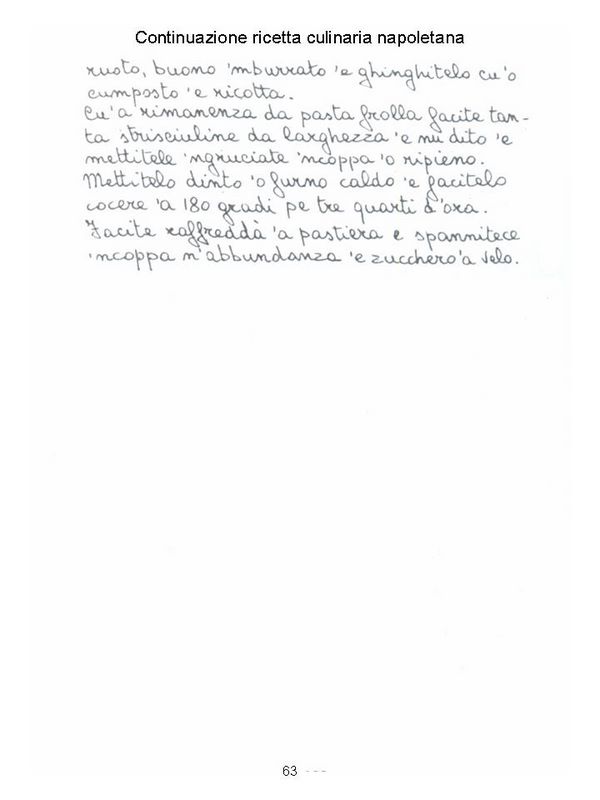 Continuazione ricetta culinaria napoletana
ruoto, buono 'mburrato 'e ghinghitelo cu'o
cumposto 'e ricotta.
Cu'a rimanenza da pasta frolla facite tan-
ta strisciuline da larghezza 'e nu dito 'e
mettitele 'ngruciate 'ncoppa 'o ripieno.
Mettitelo dinto 'o furno caldo 'e facitelo
cocere 'a 180 gradi pe tre quarti d'ora.
Facite raffreddà 'a pastiera e spannitece
'ncoppa n'abbundanza 'e zucchero 'a velo.
63 - - -